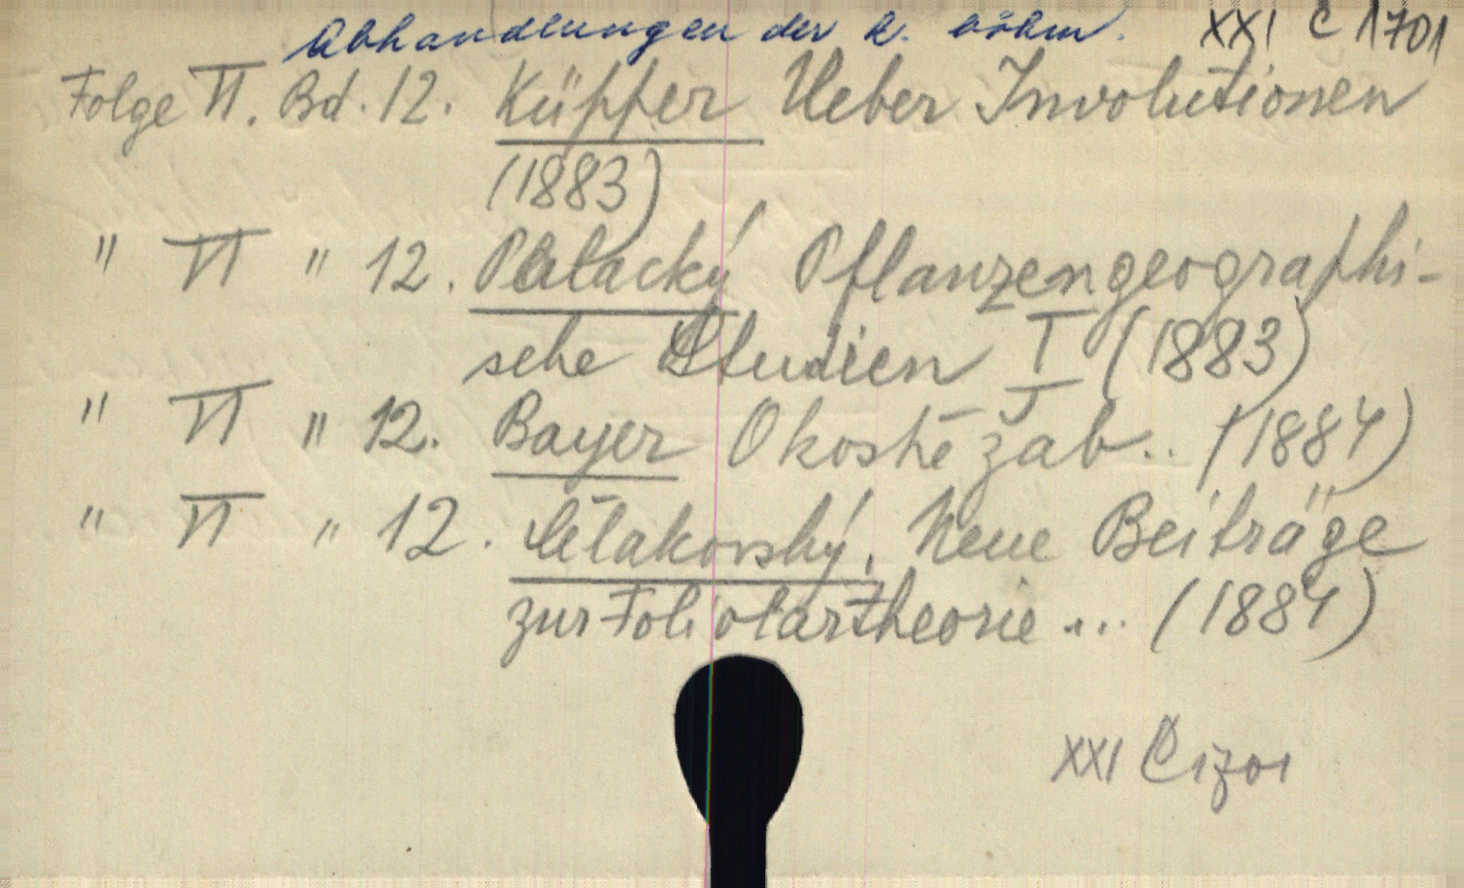 Abhandlungen der k. böhm. XXI C 1701
Folge VI. Bd. 12. Küpper Ueber Involutionen
(1883)
" VI " 12. Palacký Pflanzengeographi-
sche Studien I (1883)
" VI " 12. Bayer O kostě žab.. (1884)
" VI " 12. Čelakovský. Neue Beiträge
zur Foliolartheorie ... (1884)
XXI C 1701